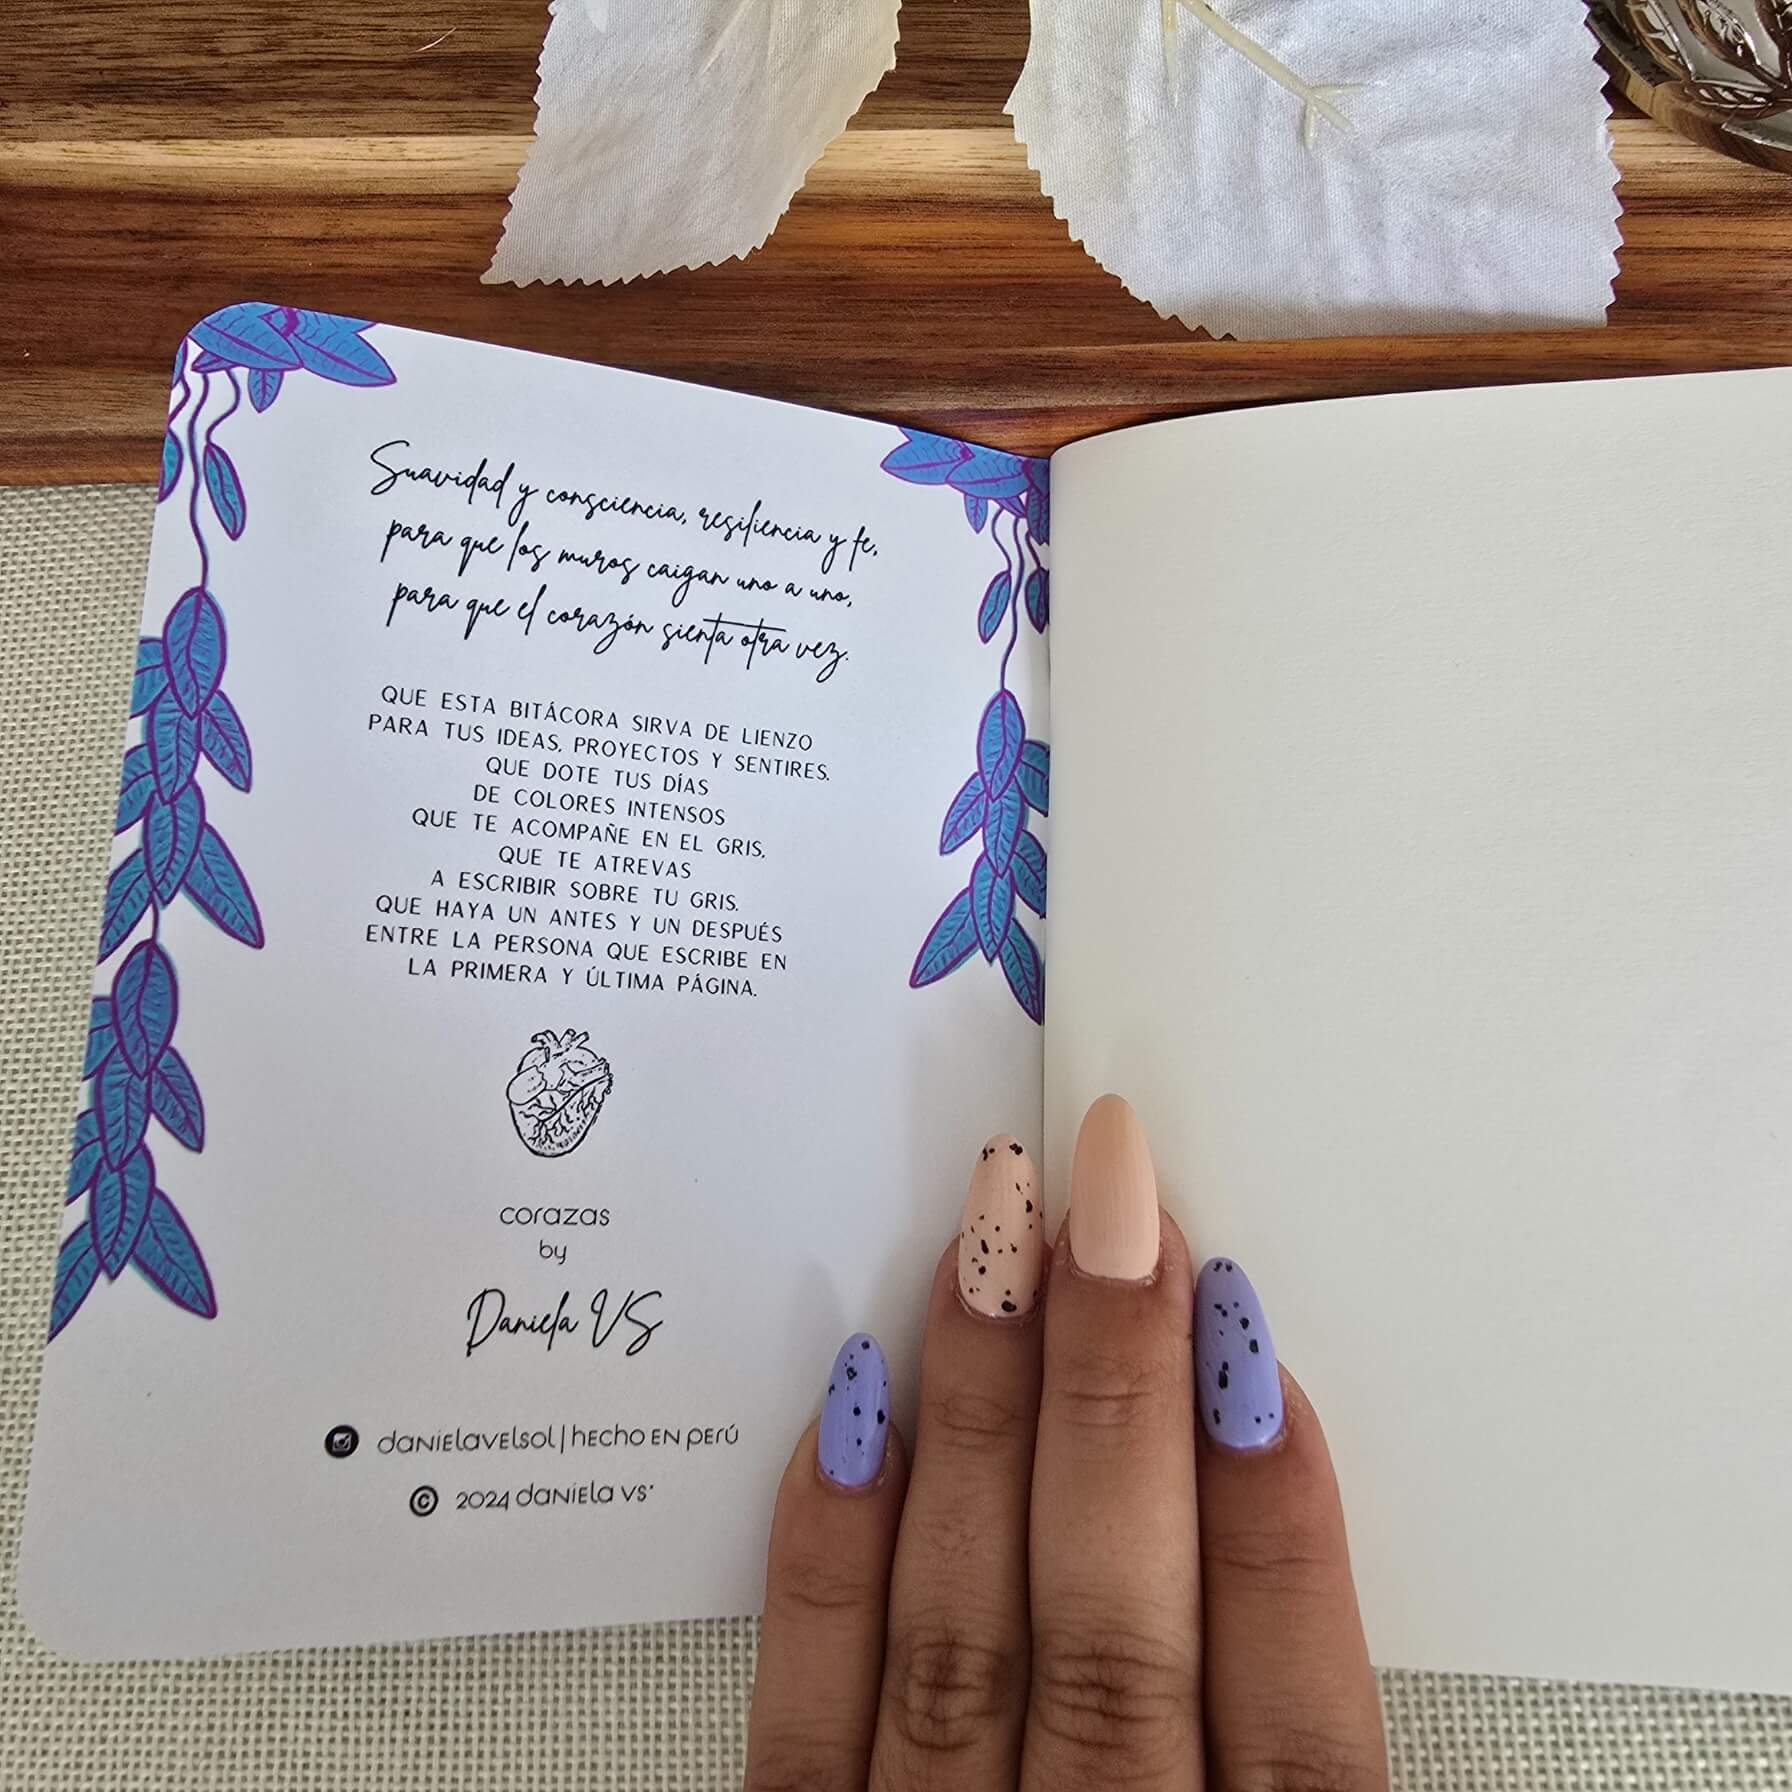 Suavidad y consciencia, resiliencia y fe,
para que los muros caigan uno a uno,
para que el corazón sienta otra vez.
QUE ESTA BITÁCORA SIRVA DE LIENZO
PARA TUS IDEAS, PROYECTOS Y SENTIRES.
QUE DOTE TUS DÍAS
DE COLORES INTENSOS
QUE TE ACOMPAÑE EN EL GRIS,
QUE TE ATREVAS
A ESCRIBIR SOBRE TU GRIS.
QUE HAYA UN ANTES Y UN DESPUÉS
ENTRE LA PERSONA QUE ESCRIBE EN
LA PRIMERA Y ÚLTIMA PÁGINA.
corazas
by
Daniela VS
danielavelsol | hecho en perú
© 2024 daniela vs·